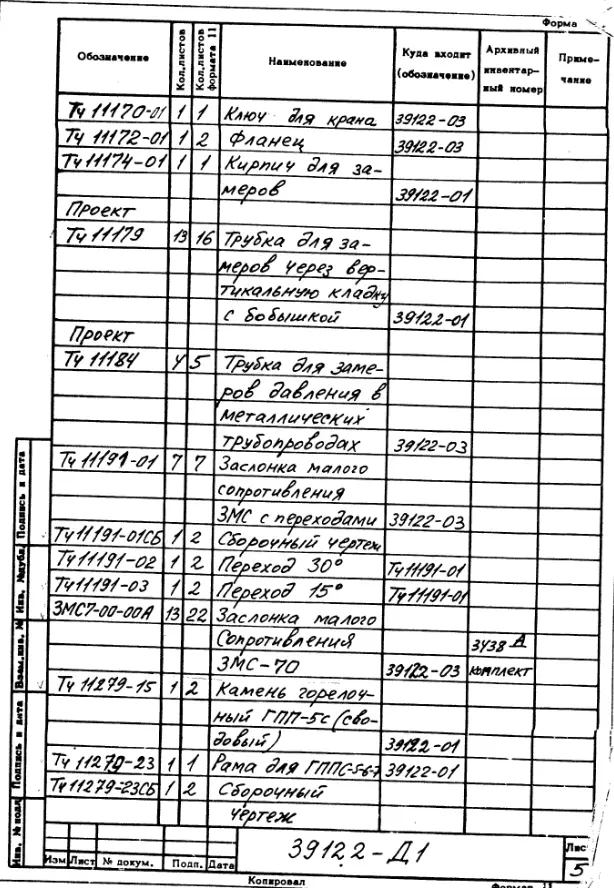 Форма
Обозначение Кол.листов Кол.листов формата 11 Наименование Куда входит (обозначение) Архивный инвентарный номер Примечание
ТЧ 11170-01 1 1 Ключ для крана 39122-03
ТЧ 11172-01 1 2 Фланец 39122-03
ТЧ 11174-01 1 1 Кирпич для за-
меров 39122-01
Проект
ТЧ 11179 13 16 Трубка для за-
меров через вер-
тикальную кладку
с бобышкой 39122-01
Проект
ТЧ 11184 4 5 Трубка для заме-
ров давления в
металлических
трубопроводах 39122-03
ТЧ 11191-01 7 7 Заслонка малого
сопротивления
ЗМС с переходами 39122-03
ТЧ 11191-01СБ 1 2 Сборочный чертеж
ТЧ 11191-02 1 2 Переход 30° ТЧ 11191-01
ТЧ 11191-03 1 2 Переход 15° ТЧ 11191-01
ЗМС7-00-00А 13 22 Заслонка малого
Сопротивления 3438 А
ЗМС-70 39122-03 комплект
ТЧ 11279-15 1 2 Камень горелоч-
ный ГПП-5с (сво-
довый) 39122-01
ТЧ 11279-23 1 1 Рама для ГППС-5-6-7 39122-01
ТЧ 11279-23СБ 1 2 Сборочный
чертеж
Подпись и дата
Инв. № дубл.
Взам.инв. №
Подпись и дата
Инв. № подл.
39122-Д1
Лис
5
Изм Лист № докум. Подп. Дата
Копировал
Формат 11